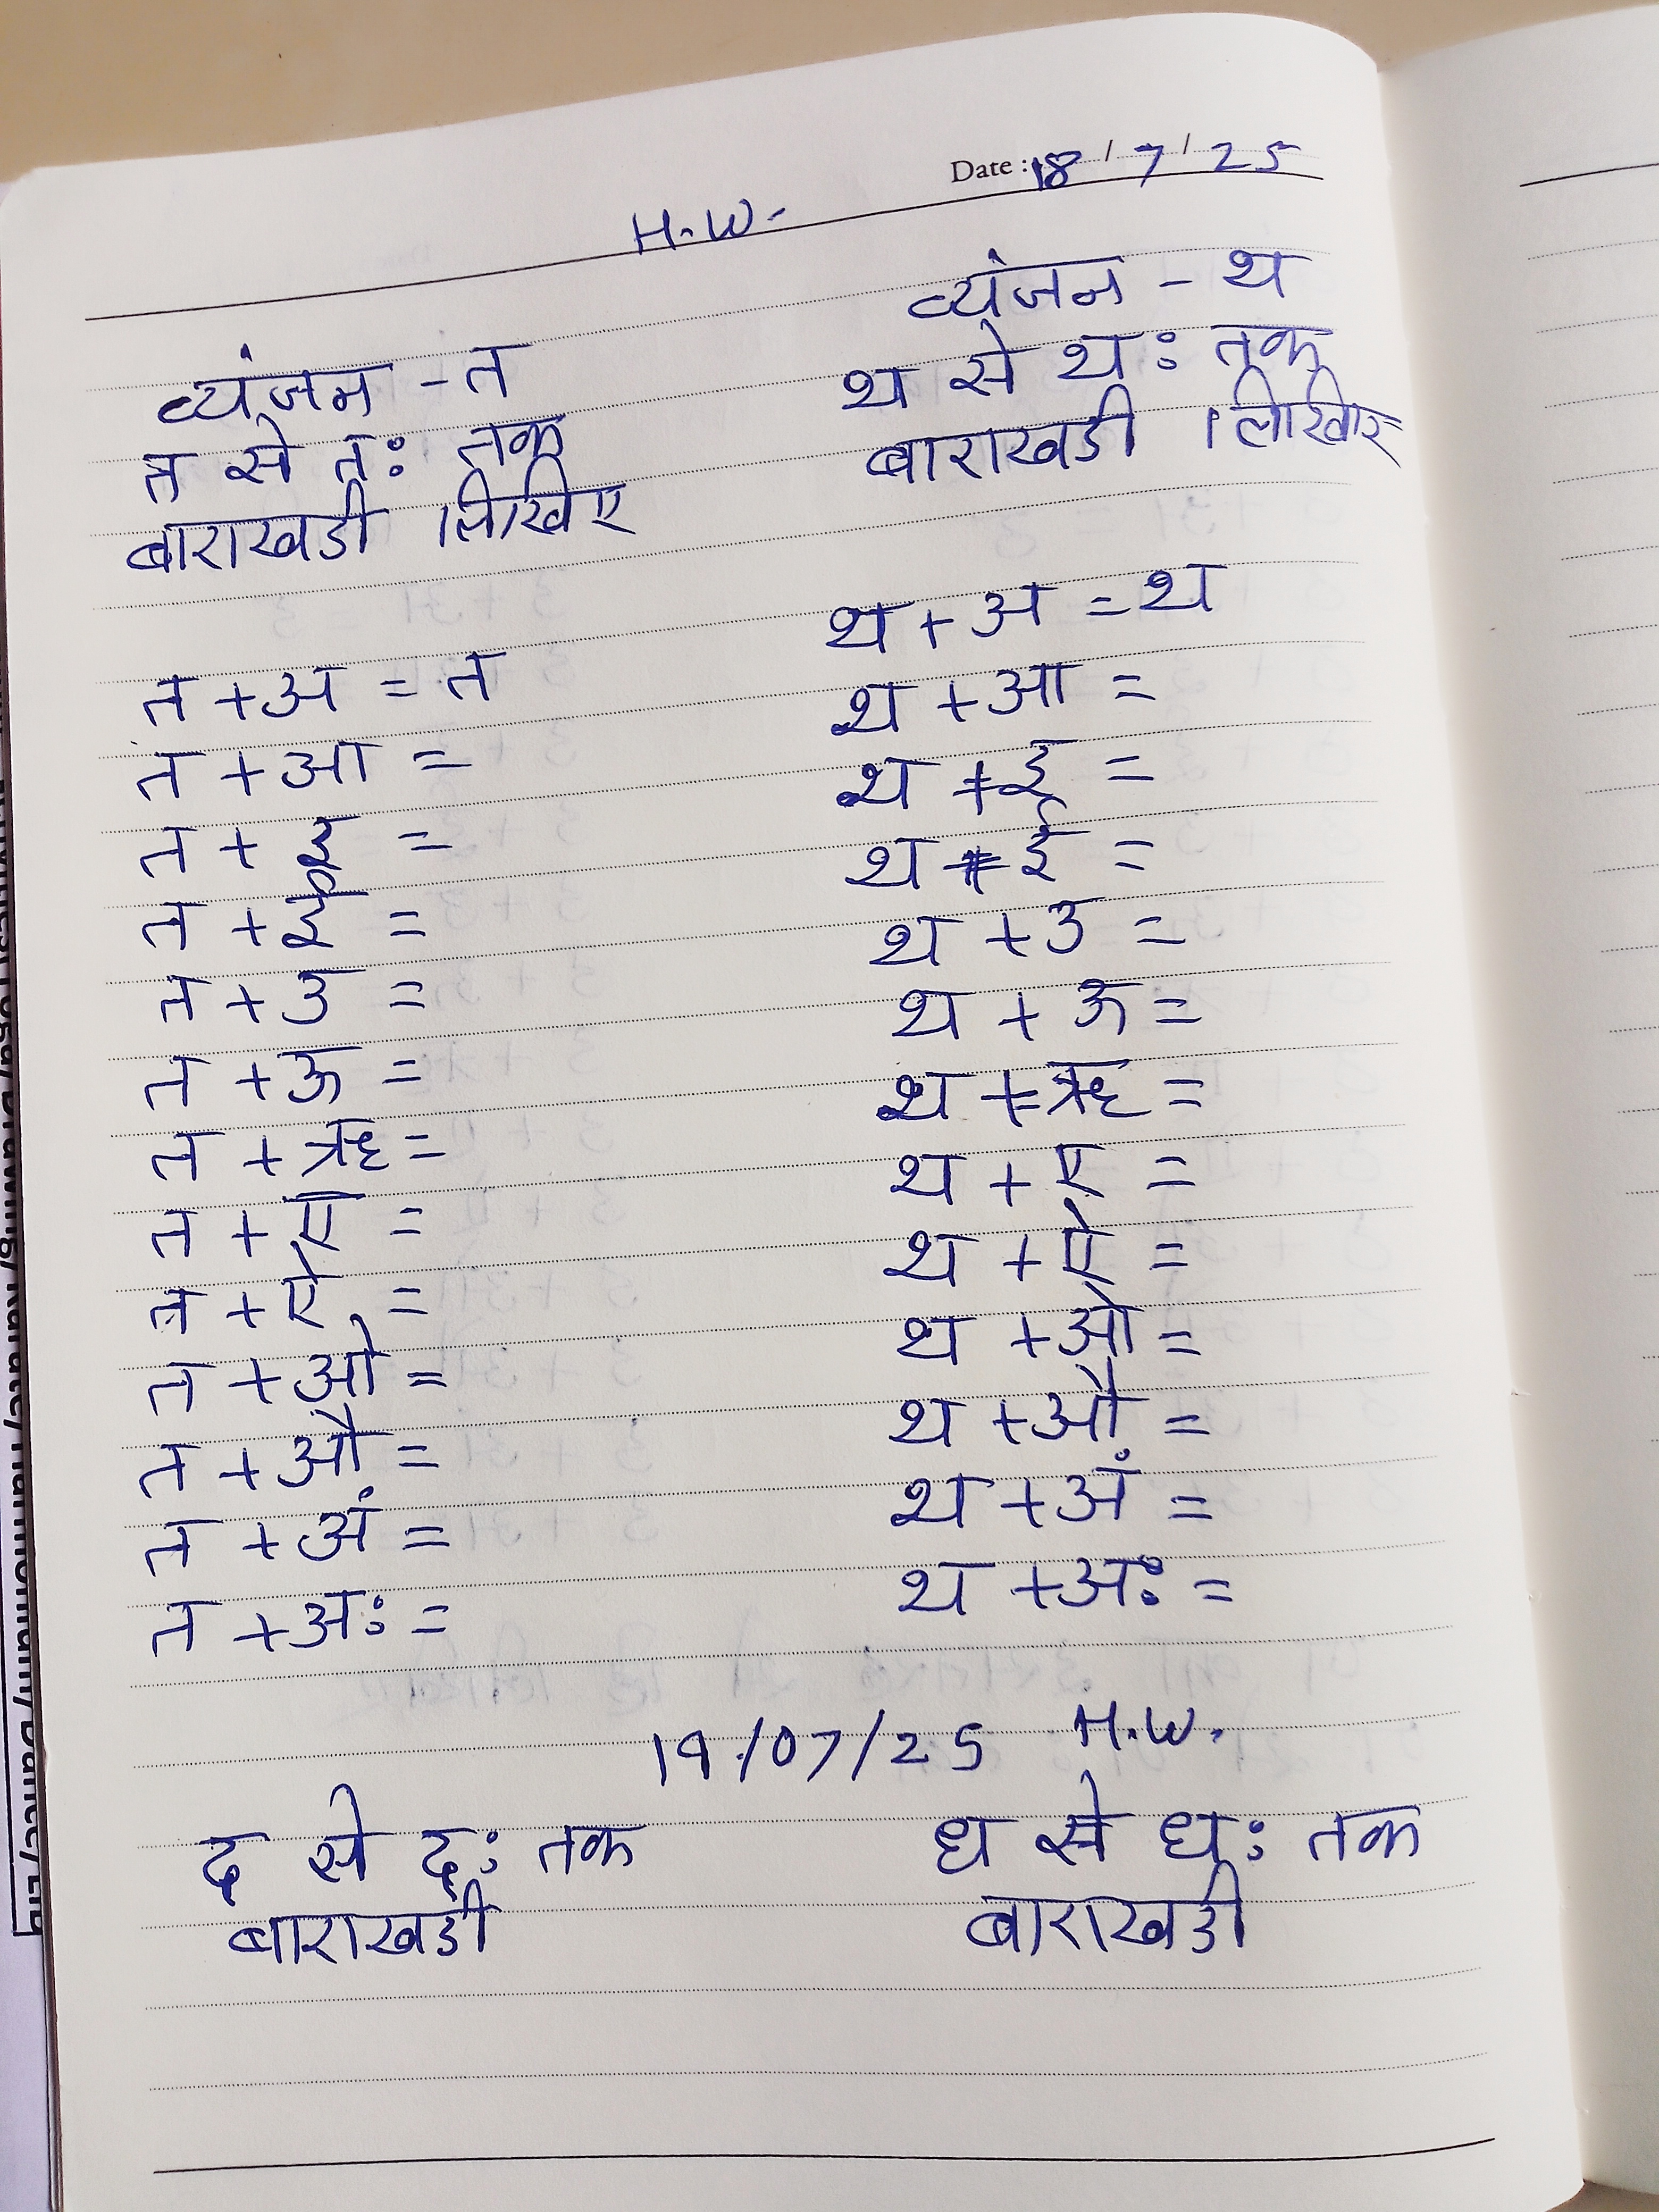 Date : 18 / 7 / 25
H.W.
व्यंजन - त
त से तः तक
बाराखडी लिखिए
त + अ = त
त + आ =
त + इ =
त + ई =
त + उ =
त + ऊ =
त + ऋ =
त + ए =
त + ऐ =
त + ओ =
त + औ =
त + अं =
त + अः =
व्यंजन - थ
थ से थः तक
बाराखडी लिखिए
थ + अ = थ
थ + आ =
थ + इ =
थ + ई =
थ + उ =
थ + ऊ =
थ + ऋ =
थ + ए =
थ + ऐ =
थ + ओ =
थ + औ =
थ + अं =
थ + अः =
19/07/25 H.W.
द से दः तक
बाराखडी
ध से धः तक
बाराखडी